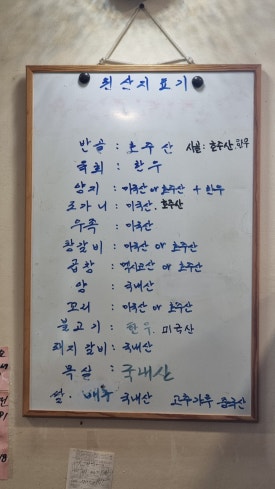 원산지표기
반골 : 호주산 사골: 호주산 한우
육회 : 한우
양지 : 미국산 or 호주산 + 한우
도가니 : 미국산, 호주산
우족 : 미국산
찜갈비 : 미국산 or 호주산
곱창 : 멕시코산 or 호주산
양 : 국내산
꼬리 : 미국산 or 호주산
불고기 : 한우, 미국산
돼지갈비 : 국내산
목살 : 국내산
쌀. 배추 국내산 고추가루 중국산